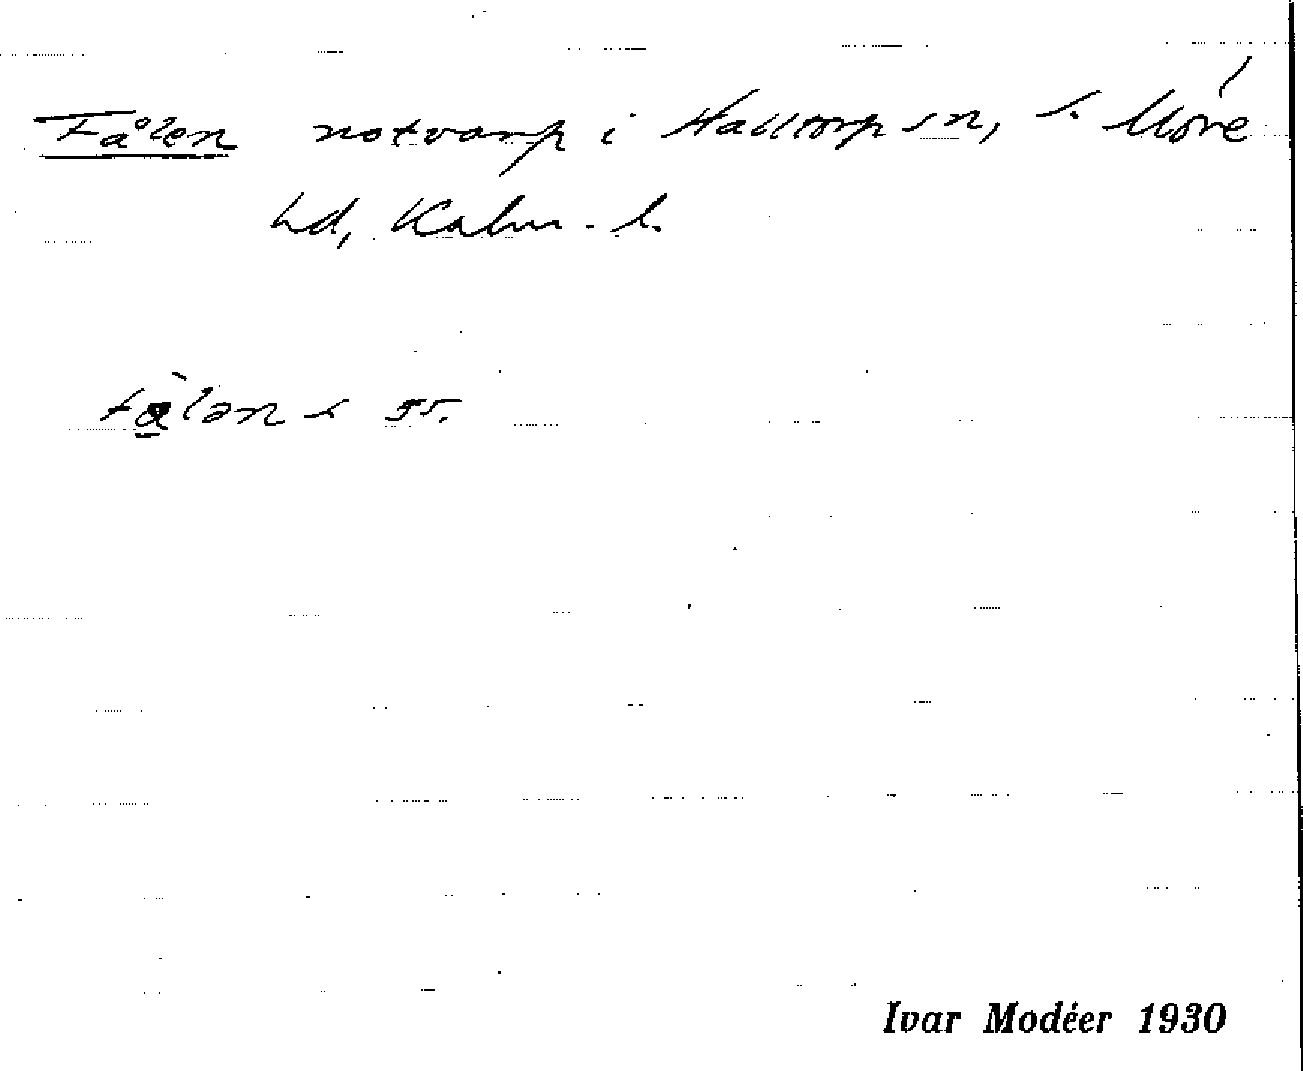 Fålen notvarp i Halltorp sn, S. Möre
hd, Kalm. l.
Ivar Modéer 1930